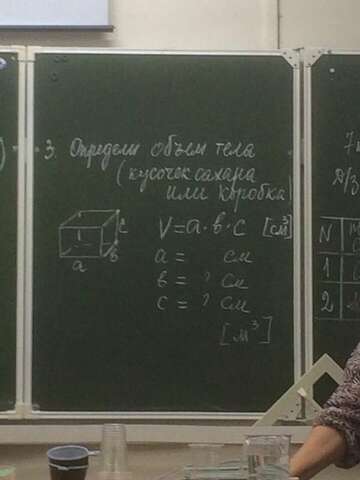 3. Определи объем тела
(кусочек сахара
или коробка)
V = a · в · c [см³]
a = см
в = ? см
c = ? см
[м³]
a
в
c
)
7
Д/З
N
1
2